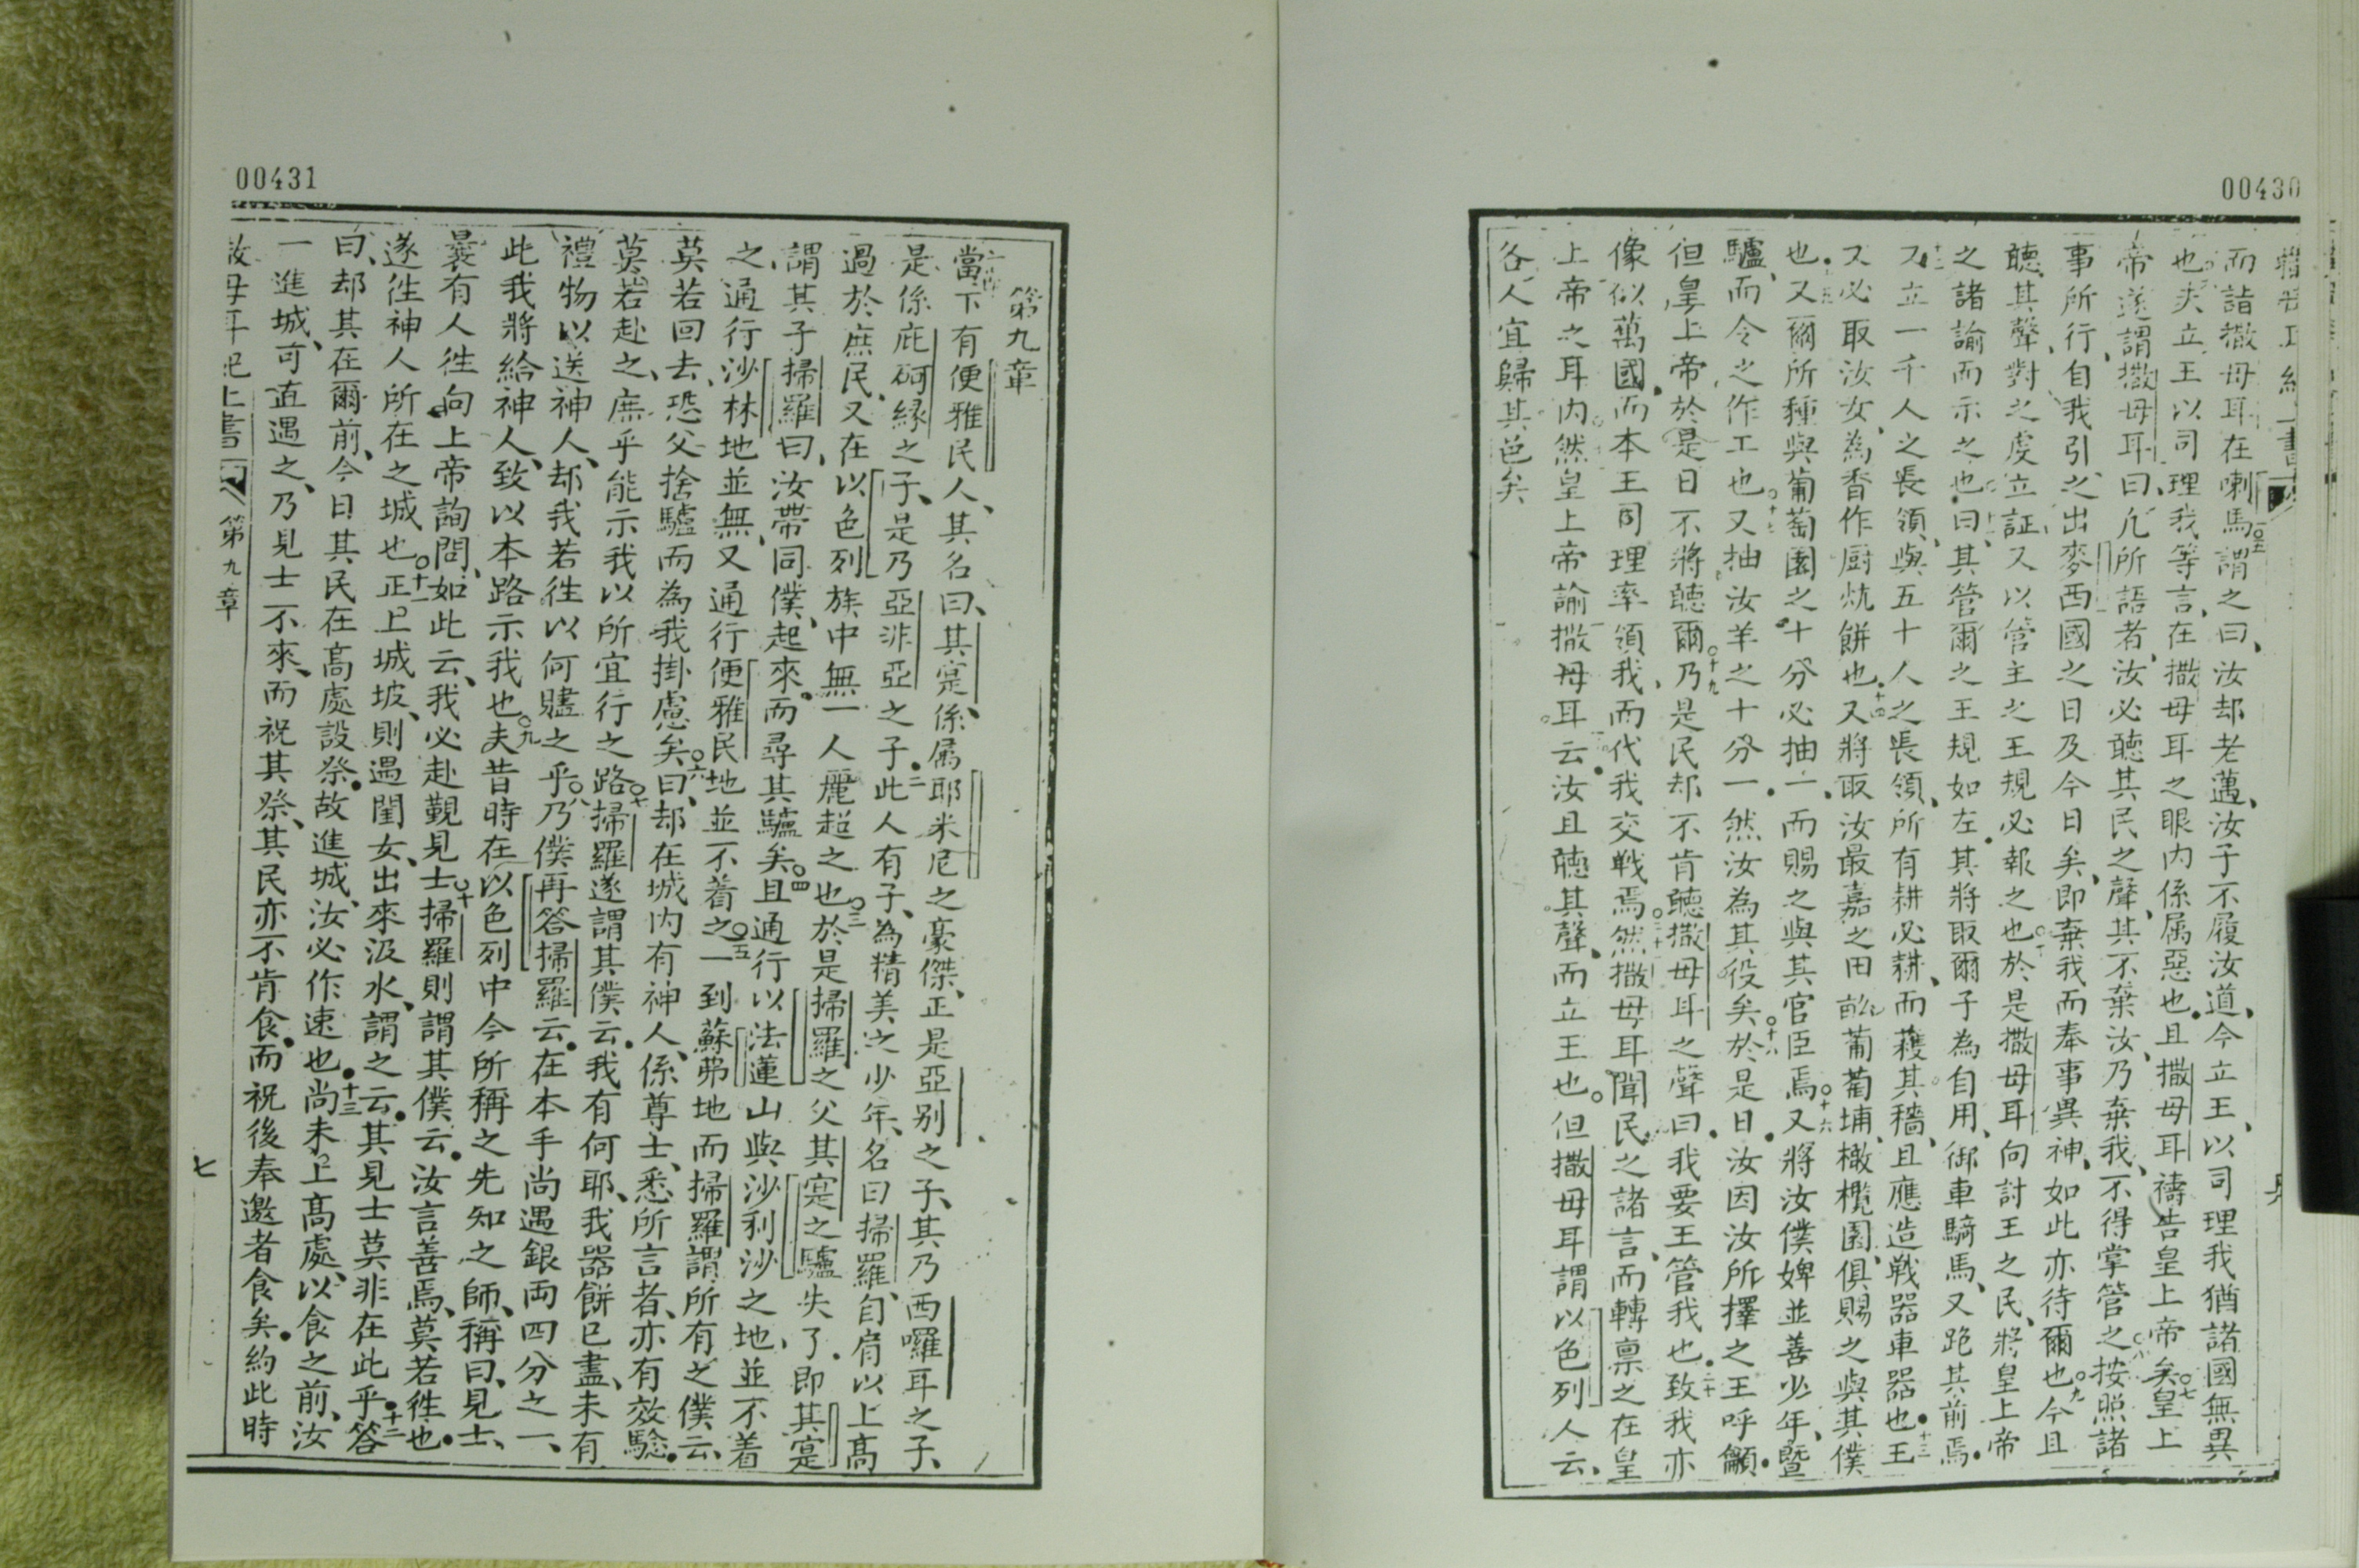 00430
而詣撒母耳在喇馬謂之曰、汝却老邁、汝子不履汝道、今立王、以司理我猶諸國無異
也夫立王以司理我等言、在撒母耳之眼内係属惡也且撒母耳禱告皇上帝矣皇上
帝遂謂撒母耳曰、凡所語者、汝必聽其民之聲、其不棄汝、乃棄我、不得掌管之按照諸
事所行、自我引之出麥西國之日及今日矣、即棄我而奉事異神、如此亦待爾也今且
聽其聲、對之虔立証又以管主之王規必報之也於是撒母耳向討王之民、將皇上帝
之諸諭而示之也曰、其管爾之王規如左其將取爾子為自用、御車騎馬、又跑其前焉
又立一千人之長領、與五十人之長領、所有耕必耕、而穫其穡、且應造戰器車器也王
又必取汝女、為香作厨炕餅也又將取汝最嘉之田葡萄埔、橄欖園、俱賜之與其僕
也又爾所種與葡萄園之十分必抽一、而賜之與其官臣焉又將汝僕婢並善少年、曁
驢、而令之作工也又抽汝羊之十分一然汝為其役矣於是日汝因汝所擇之王呼籲
但皇上帝於是日不將聽爾乃是民却不肯聽撒母耳之聲曰我要王管我也致我亦
像似萬國、而本王司理率領我、而代我交戰焉然撒母耳聞民之諸言、而轉禀之在皇
上帝之耳内然皇上帝諭撒母耳云汝且聽其聲、而立王也但撒母耳謂以色列人云、
各人宜歸其邑矣
00431
第九章
當下有便雅民人、其名曰、其寔、係属耶米尼之豪傑、正是亞别之子、其乃西囉耳之子、
是係庇砢緑之子、是乃亞非亞之子二此人有子、為精美之少年、名曰掃羅、自肩以上高
過於庶民、又在以色列族中無一人麗超之也三於是掃羅之父其寔之驢失了、即其寔
謂其子掃羅曰、汝帶同僕、起來、而尋其驢矣四且通行以法蓮山與沙利沙之地、並不着
之、通行沙林地並無又通行便雅民地並不着之五一到蘇弗地而掃羅謂所有之僕云、
莫若回去、恐父捨驢而為我掛慮矣六曰、却在城内有神人、係尊士、悉所言者、亦有效騐
莫若赴之、庶乎能示我以所宜行之路七掃羅遂謂其僕云我有何耶、我器餅已盡、未有
禮物以送神人、却我若徃以何贐之乎八乃僕再答掃羅云在本手尚遇銀両四分之一、
此我將給神人、致以本路示我也九夫昔時在以色列中今所稱之先知之師、稱曰、見士、
曩有人徃向上帝詢問、如此云、我必赴覲見士十掃羅則謂其僕云汝言善焉、莫若徃也
遂徃神人所在之城也十一正上城坡、則遇閨女、出來汲水、謂之云其見士莫非在此乎十二答
曰、却其在爾前、今日其民在高處設祭故進城、汝必作速也十三尚未上高處、以食之前、汝
一進城、可直遇之、乃見士不來、而祝其祭、其民亦不肯食而祝後奉邀者食矣約此時
撒母耳紀上書 第九章
七